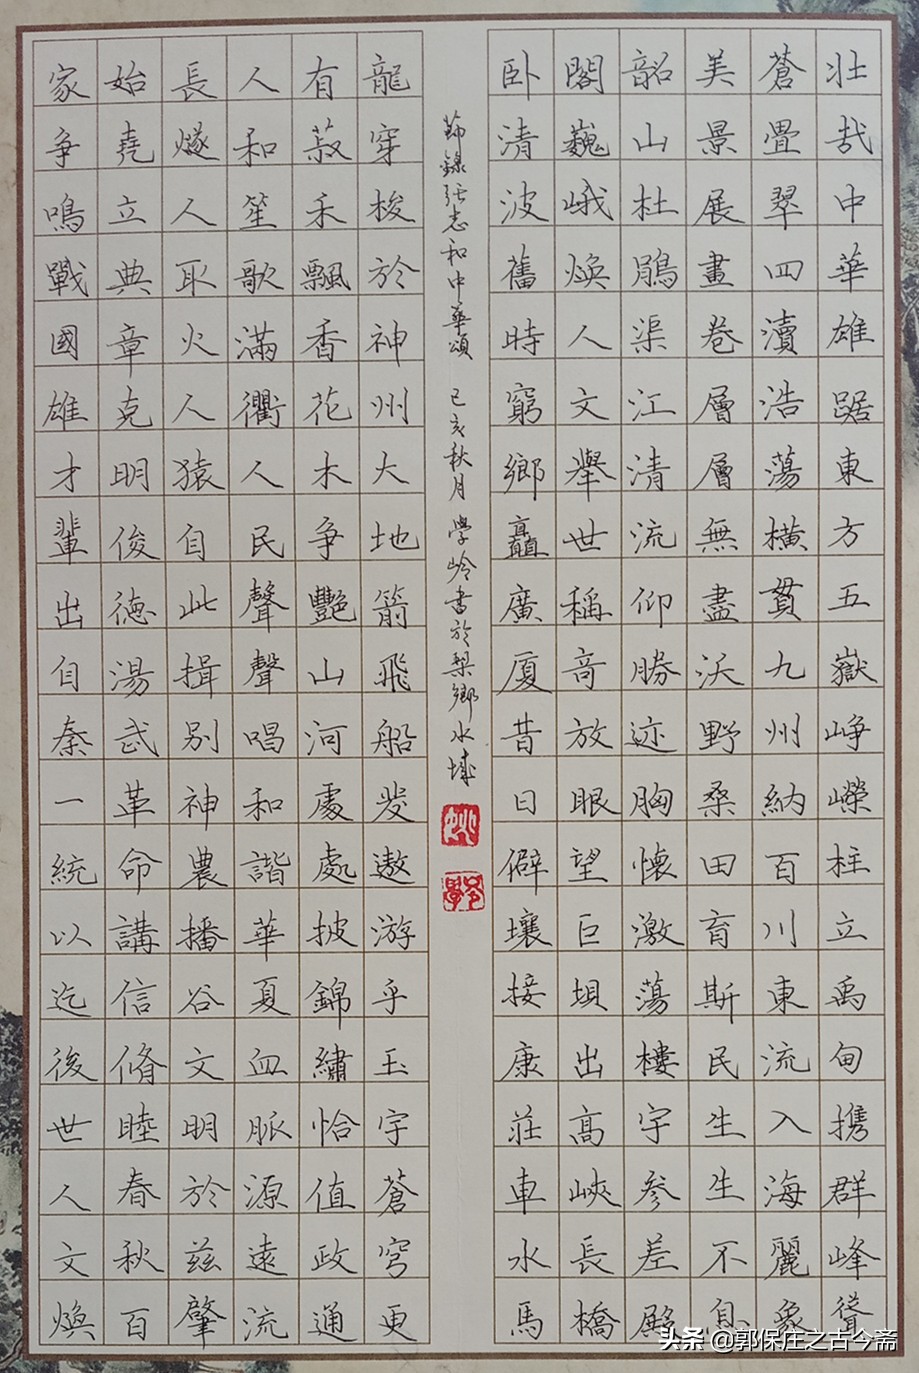 壯哉中華雄踞東方五嶽崢嶸柱立禹甸携群峰聳
蒼疊翠四瀆浩蕩橫貫九州納百川東流入海麗象
美景展畫卷層層無盡沃野桑田育斯民生生不息
韶山杜鵑渠江清流仰勝迹胸懷激蕩樓宇參差殿
閣巍峨煥人文舉世稱奇放眼望巨壩出高峽長橋
卧清波舊時窮鄉矗廣厦昔日僻壤接康莊車水馬
龍穿梭於神州大地箭飛船發遨游乎玉宇蒼穹更
有菽禾飄香花木争艷山河處處披錦繡恰值政通
人和笙歌滿衢人民聲聲唱和諧華夏血脈源遠流
長燧人取火人猿自此揖别神農播谷文明於兹肇
始堯立典章克明俊德湯武革命講信脩睦春秋百
家争鳴戰國雄才輩出自秦一統以迄後世人文煥
節錄張志和中華頌 己亥秋月 學岭書於梨鄉水城
头条 @郭保庄之古今斋